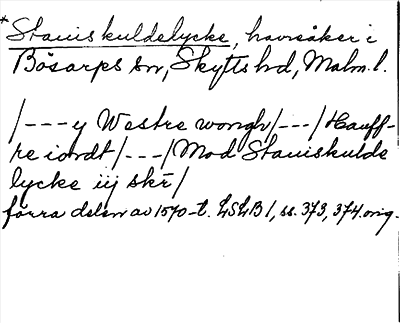 *Staniskuldelycke, havreåker i
Bösarps sn, Skytts hd, Malm. l.
/---y Westre wongh/---/Hauff-
re iordt/---/Mod Staniskulde
lycke iij skr/
förra delen av 1570-t. LSLB 1, ss. 373, 374. orig.